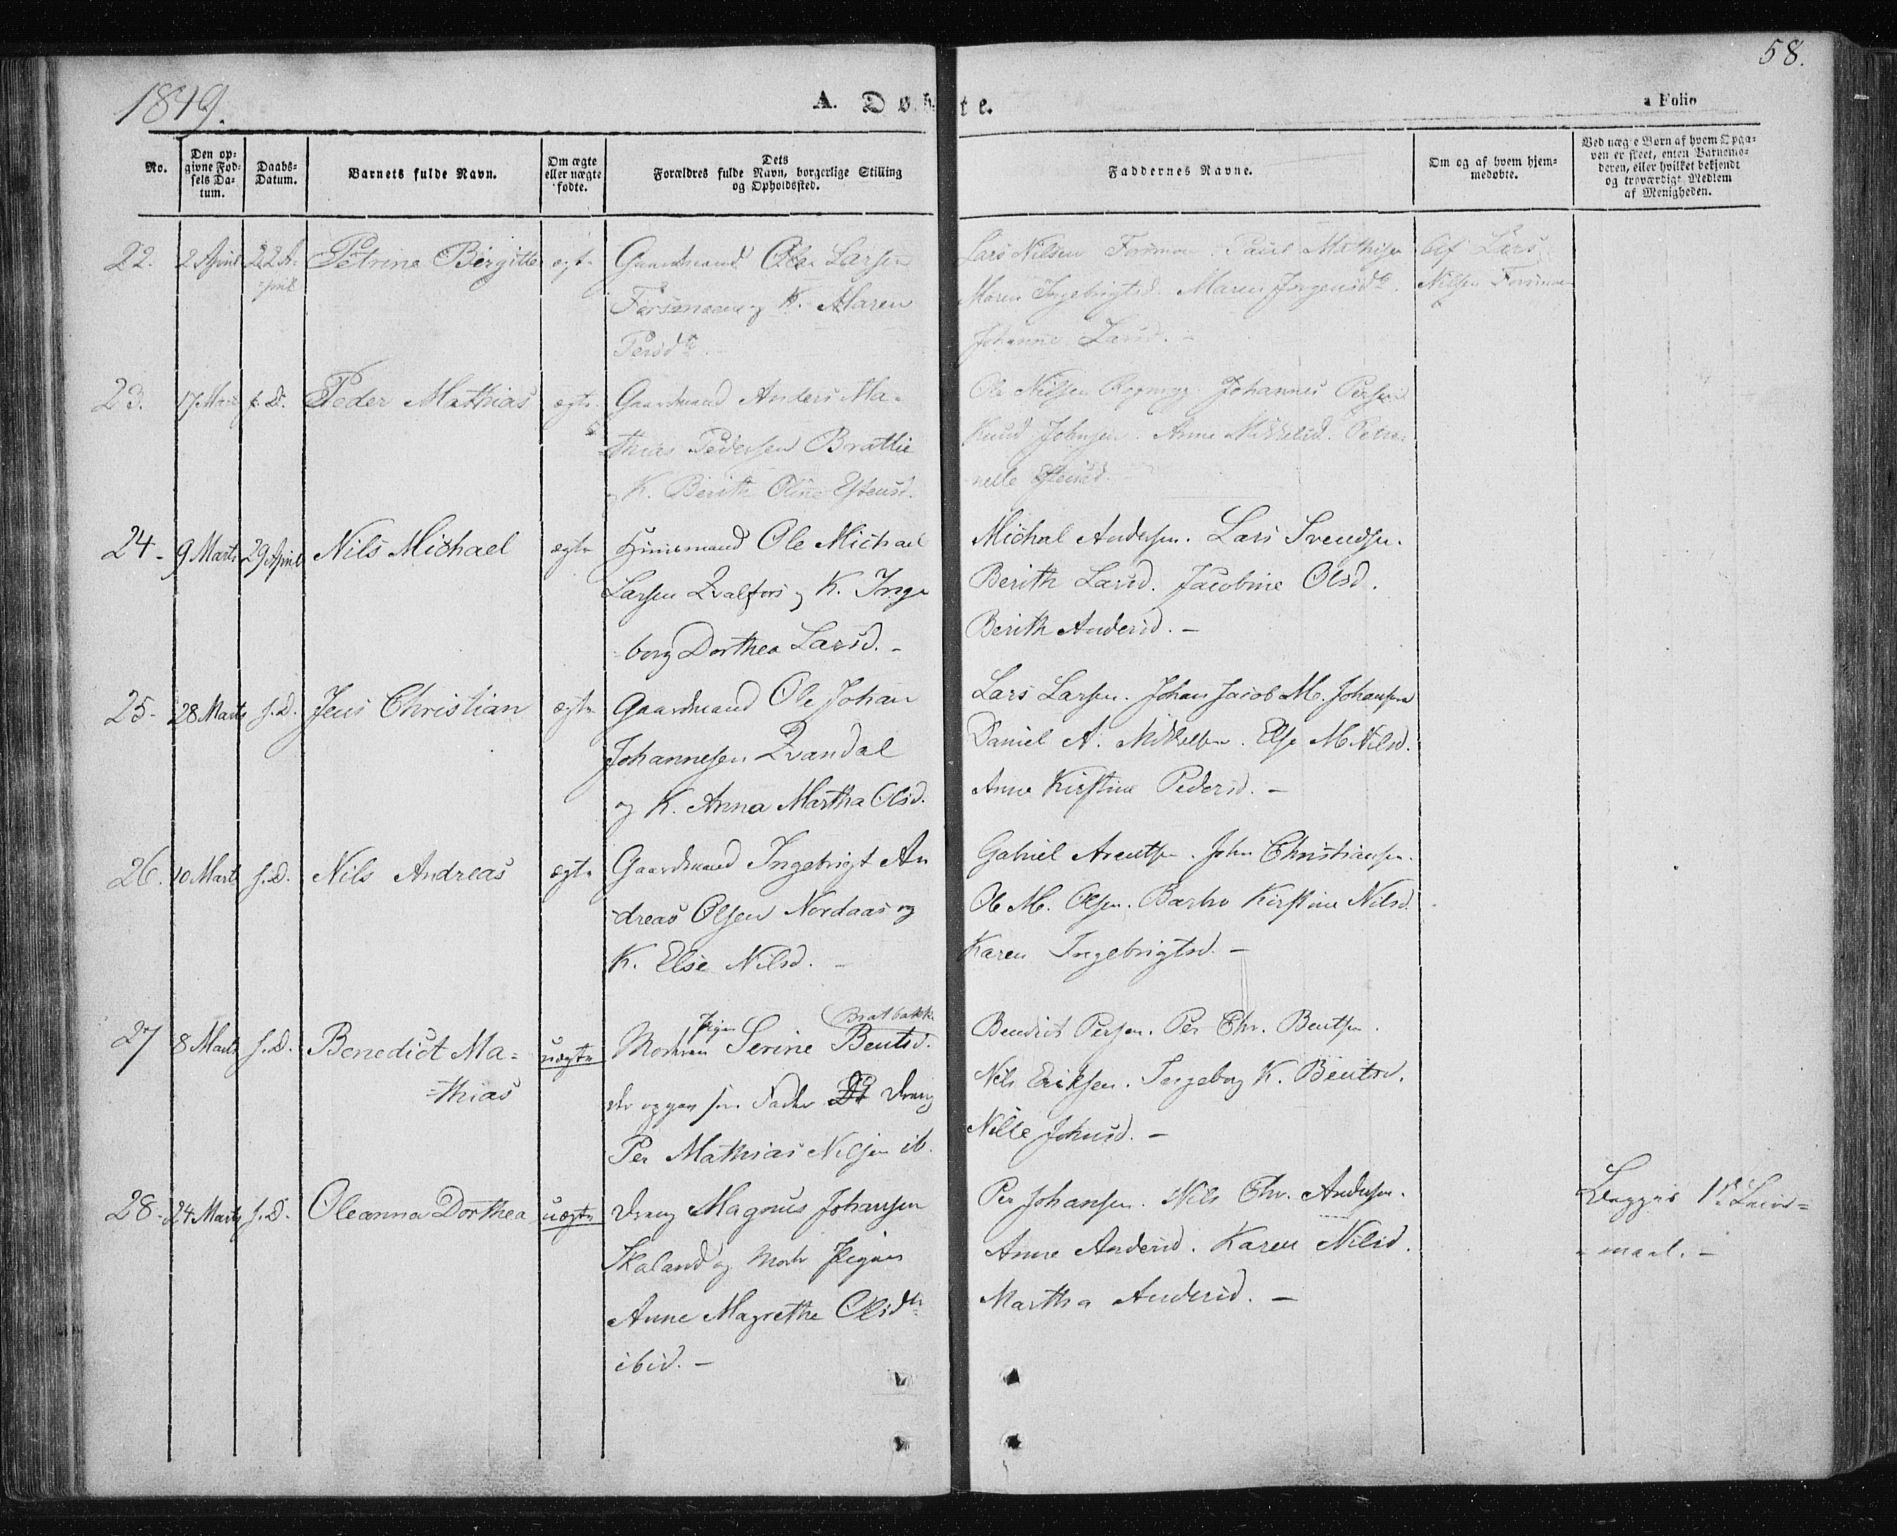 1849.
58.
A. Døbte.
a Folio
No.
Den opgivne Fødsels Datum.
Daabs-Datum.
Barnets fulde Navn.
Om ægte eller uægte fødte.
Dets Forældres fulde Navn, borgerlige Stilling og Opholdssted.
Faddernes Navne.
Om og af hvem hjemmedøbte.
Ved uægte Børn af hvem Opgaven er skeet, enten Barnemoderen, eller hvilket bekjendt og troværdigt Medlem af Menigheden.
22. 2 April 22 April Petrine Birgitte ægte Gaardmand Ole Larsen
Forsmoen og K. Maren
Persd.
Lars Nilsen Forsmoe. Paul Mathisen
Maren Ingebrigtsd. Maren Jørgensd.
Johanne Larsd. -
Af Lars
Nilsen Forsmoe
23. 17 Marts s. D. Peder Mathias ægte Gaardmand Anders Ma-
thias Pedersen Brattlie
K. Berith Oline Estensd.
Ole Nilsen Johannes Persen
Knud Johnsen. Anne Mikkelsd. Petro-
nelle Estensd.
24- 9 Marts 29 April Nils Michael ægte Huusmand Ole Michael
Larsen Qvalfors og K. Inge
borg Dorthea Larsd. -
Michal Andersen. Lars Svendsen.
Berith Larsd. Jacobine Olsd.
Berith Andersd. -
25- 28 Marts s. D. Jens Christian ægte Gaardmand Ole Johan
Johannesen Qvandal
og K. Anna Martha Olsd.
Lars Larsen. Johan Jacob M. Johansen
Daniel A. Mikkelsen. Else M Nilsd.
Anne Kirstine Pedersd. -
26. 10 Marts s. D. Nils Andreas ægte Gaardmand Ingebrigt An
dreas Olsen Nordaas og
K. Else Nilsd. -
Gabriel Arentsen. John Christiansen.
Ole M. Olsen. Barbro Kirstine Nilsd.
Karen Ingebrigtsd. -
27 8 Marts s. D. Benedict Ma-
thias
uægte Moderen Pigen Serine Bentsd. Bratbakk
der opgav som Fader Dreng
Per Mathias Nilsen ib.
Benedict Persen. Per Chr. Bentsen.
Nils Eriksen. Ingeborg K. Bentsd.
Nille Johnsd. -
28- 24 Marts s. D. Oleanna Dorthea uægte Dreng Magnus Johansen
Skaland og Moder Pigen
Anne Magrethe Olsdtr
ibid. -
Per Johansen. Nils Chr. Andersen.
Anne Andersd. Karen Nilsd.
Martha Andersd. -
Begges 1ste Leier=
maal. -